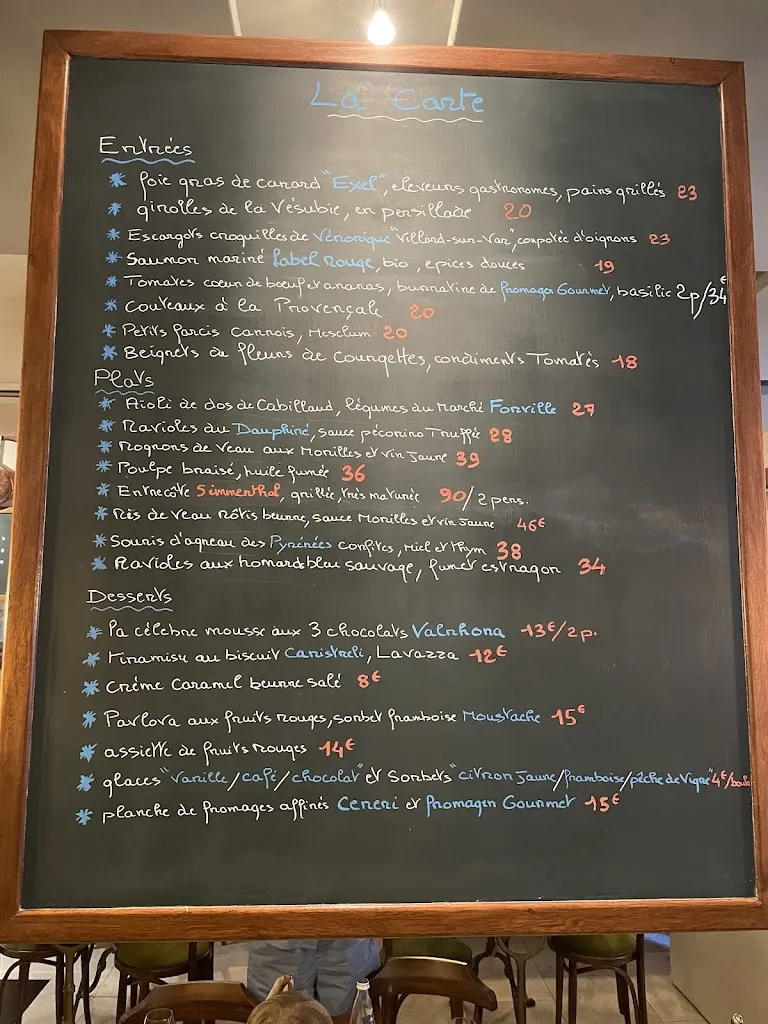 La Carte
Entrées
* foie gras de canard "Exel", éleveurs gastronomes, pains grillés 23
* girolles de la Vésubie, en persillade 20
* Escargots croquilles de Véronique "Villard-sur-Var", compotée d'oignons 23
* Saumon mariné label rouge, bio, epices douces 19
* Tomates cœur de bœuf et ananas, burratine de fromager Gourmet, basilic 2p/34€
* Couteaux à la Provençale 20
* Petits farcis Cannois, Mesclum 20
* Beignets de fleurs de courgettes, condiments Tomates 18
Plats
* Aioli de dos de Cabillaud, légumes du Marché Forville 27
* Ravioles du Dauphiné, sauce pécorino Truffée 28
* Rognons de Veau aux Morilles et vin Jaune 39
* Poulpe braisé, huile fumée 36
* Entrecôte Simmenthal, grillée, très maturée 90/2 pers.
* Ris de veau Rôtis beurre, sauce Morilles et vin Jaune 46€
* Souris d'agneau des Pyrénées confites, Miel et thym 38
* Ravioles aux homard bleu sauvage, fumet estragon 34
Desserts
* la célèbre mousse aux 3 chocolats Valrhona 13€/2p.
* Tiramisu au biscuit Canistreli, Lavazza 12€
* Crème Caramel beurre salé 8€
* Pavlova aux fruits rouges, sorbet framboise Moustache 15€
* assiette de fruits rouges 14€
* glaces "Vanille/café/chocolat" et Sorbets "citron Jaune/framboise/pêche de Vigne" 4€/boule
* planche de fromages affinés Ceneri et fromager Gourmet 15€